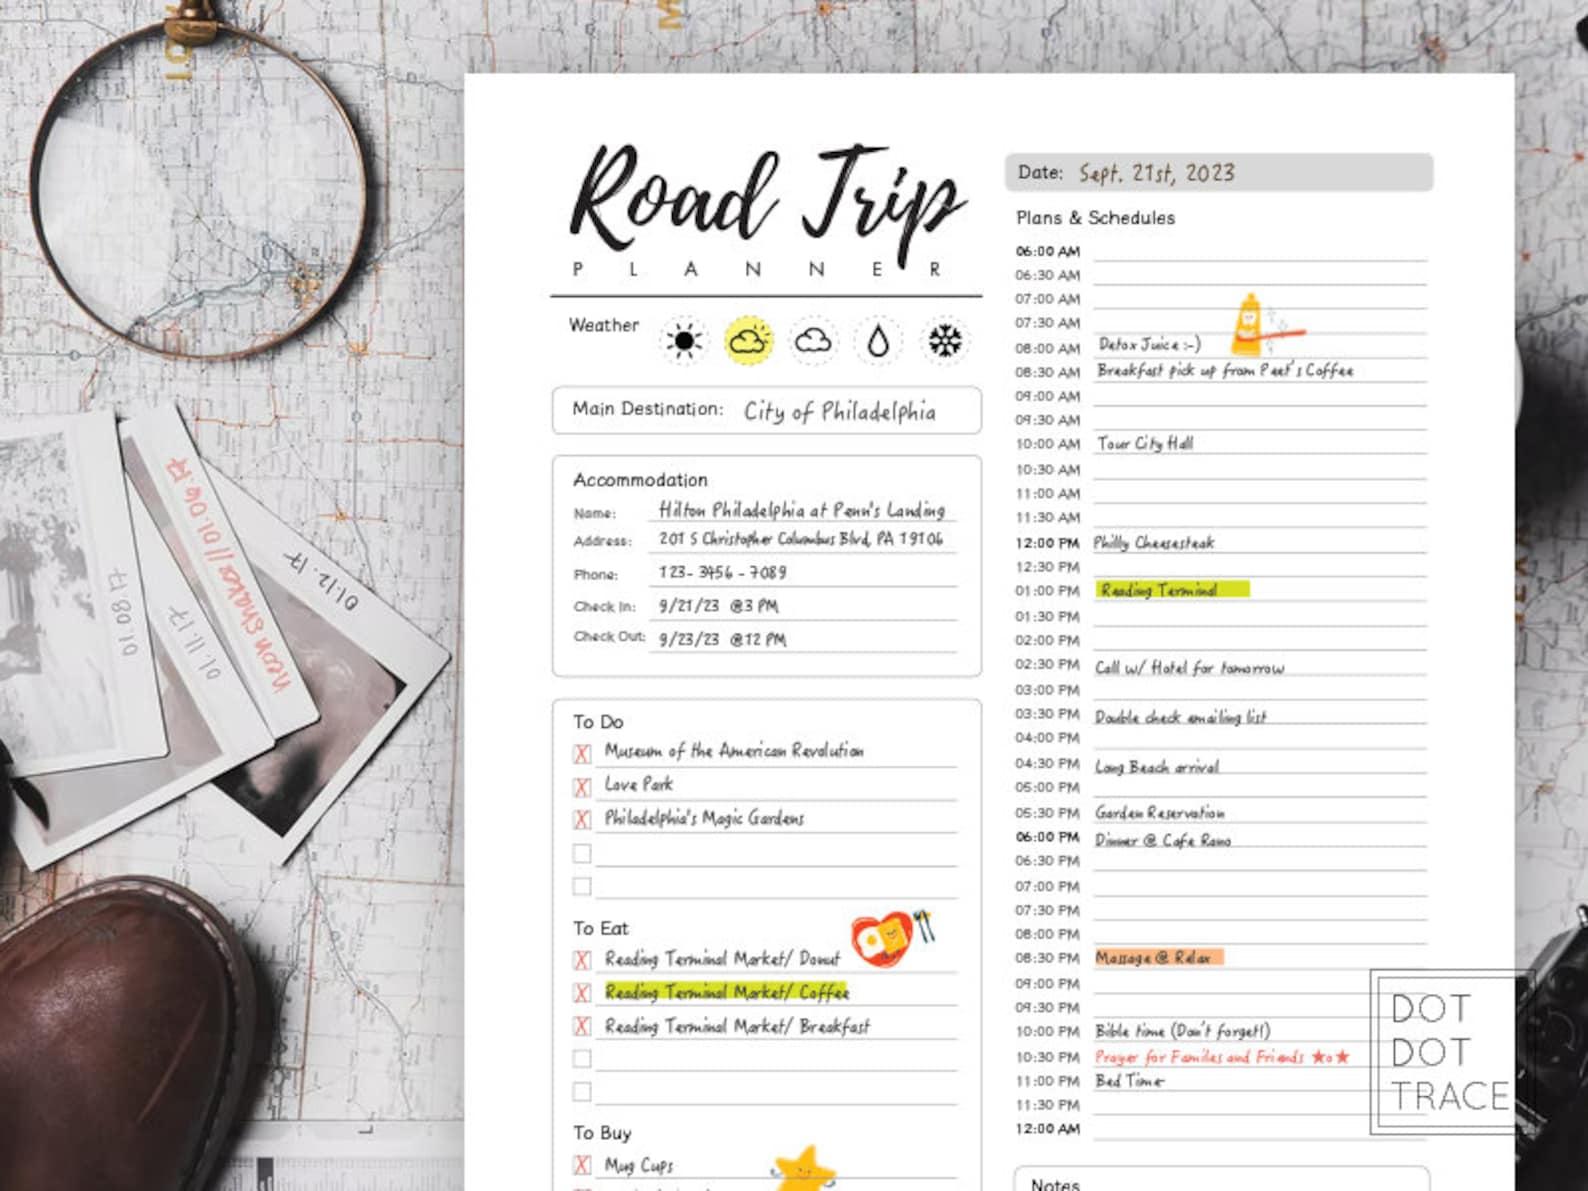 Road Trip
PLANNER
Weather
Main Destination: City of Philadelphia
Accommodation
Name: Hilton Philadelphia at Penn's Landing
Address: 201 S Christopher Columbus Blvd, PA 19106
Phone: 123-3456-7089
Check In: 9/21/23 @3 PM
Check Out: 9/23/23 @12 PM
To Do
X Museum of the American Revolution
X Love Park
X Philadelphia's Magic Gardens
To Eat
X Reading Terminal Market/ Donut
X Reading Terminal Market/ Coffee
X Reading Terminal Market/ Breakfast
To Buy
X Mug Cups
Date: Sept. 21st, 2023
Plans & Schedules
06:00 AM
06:30 AM
07:00 AM
07:30 AM
08:00 AM Detox Juice :-)
08:30 AM Breakfast pick up from Peet's Coffee
09:00 AM
09:30 AM
10:00 AM Tour City Hall
10:30 AM
11:00 AM
11:30 AM
12:00 PM Philly Cheesesteak
12:30 PM
01:00 PM Reading Terminal
01:30 PM
02:00 PM
02:30 PM Call w/ Hotel for tomorrow
03:00 PM
03:30 PM Double check emailing list
04:00 PM
04:30 PM Long Beach arrival
05:00 PM
05:30 PM Garden Reservation
06:00 PM Dinner @ Cafe Rano
06:30 PM
07:00 PM
07:30 PM
08:00 PM
08:30 PM Massage @ Relax
09:00 PM
09:30 PM
10:00 PM Bible time (Don't forget!)
10:30 PM Prayer for Familes and Friends ★o★
11:00 PM Bed Time
11:30 PM
12:00 AM
Notes
DOT
DOT
TRACE
01.08.17
01.11.17
neon shakes//01.06.17
01.12.17